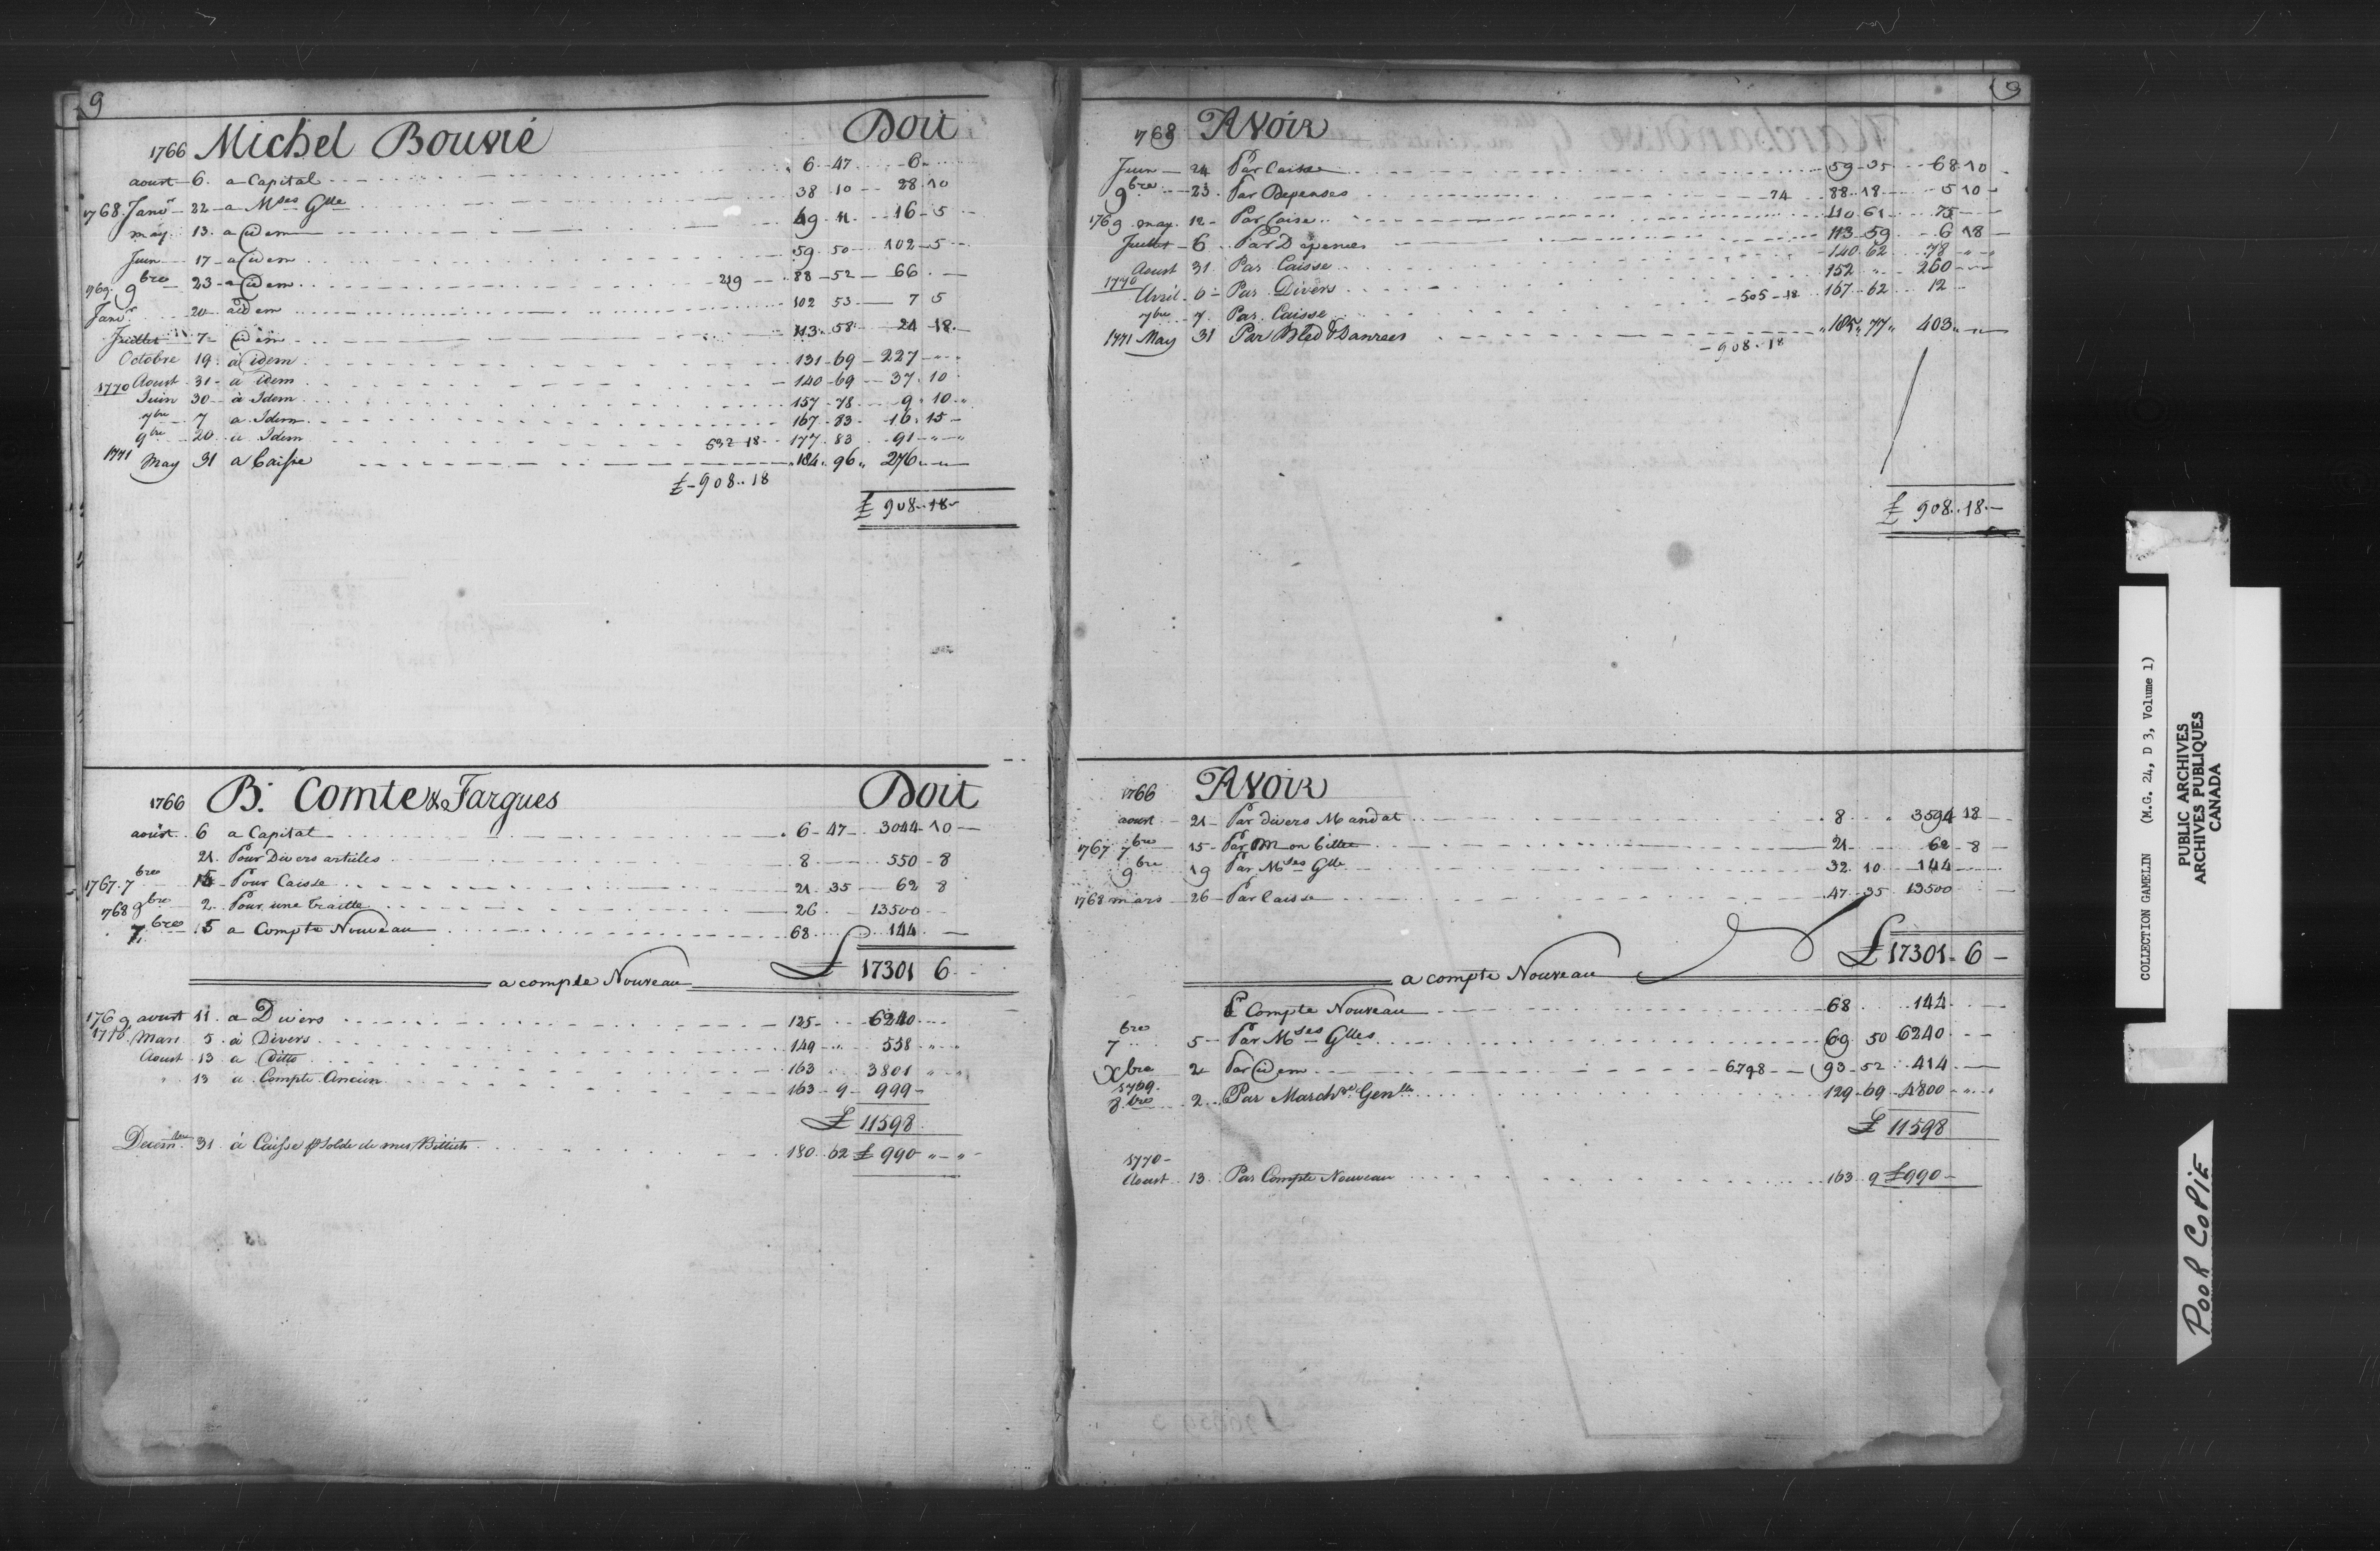 9
1766 Michel Bouvié Doit
aoust 6 a Capital 6 47 6
1768 Janvr 22 a Mses Glle 38 10 28 10
may 13 a idem 49 11 16 5
Juin 17 a idem 59 50 102 5
9bre 23 a idem 219 88 52 66
1769 Janvr 20 a idem 102 53 7 5
Juillet 7 idem 113 58 24 18
Octobre 19 à idem 131 69 227
Aoust 31 a idem 140 69 37 10
1770 Juin 30 à Idem 157 78 9 10 "
7bre 7 a Idem 167 83 16 15
9bre 20 a Idem 632 18 177 83 91 " "
1771 May 31 a Caisse 184 96 276
£ 908 18
£ 908 18
1766 B. Comte & Fargues Doit
aoust 6 a Capital 6 47 3044 10
21 Pour Divers articles 8 550 8
1767 7bre 15 Pour Caisse 21 35 62 8
9bre 2 Pour une traitte 26 13500
1768 7bre 5 a Compte Nouveau 68 144
£ 17301 6
a compte Nouveau
1769 aoust 11 a Divers 125 6240
1770 Mars 5 à Divers 149 " 558 " "
Aoust 13 a Ditto 163 3801 " "
" 13 a Compte Ancien 163 9 999
£ 11598
Decembre 31 à Caisse p solde de mes Billiets 180 62 £ 990 " "
9
1768 Avoir
Juin 24 Par Caisse 59 35 68 10
9bre 23 Par Depenses 74 88 18 5 10
1769 may 12 Par Caise 110 61 75
Juillet 6 Par Depences 113 59 6 18
Aoust 31 Par Caisse 140 62 78 " "
1770 Avril 6 Par Divers 152 " 260
7bre 7 Par Caisse 505 18 167 62 12
1771 May 31 Par Bled & Danrées 185 77 403
908 18
£ 908 18
1766 Avoir
aoust 21 Par divers Mandat 8 3594 18
1767 7bre 15 Par Mon billet 21 62 8
9bre 19 Par Mses Glle 32 10 144
1768 mars 26 Par Caisse 47 35 13500
£ 17301 6
a compte Nouveau
Pr Compte Nouveau 68 144
7bre 5 Par Mses Glles 69 50 6240
Xbre 2 Par idem 6798 93 52 414
1769 8bre 2 Par Marchse Genlle 129 69 4800 " "
£ 11598
1770
Aoust 13 Par Compte Nouveau 163 9 £ 990
COLLECTION GAMELIN (M.G. 24, D 3, Volume 1)
PUBLIC ARCHIVES
ARCHIVES PUBLIQUES
CANADA
POOR COPIE